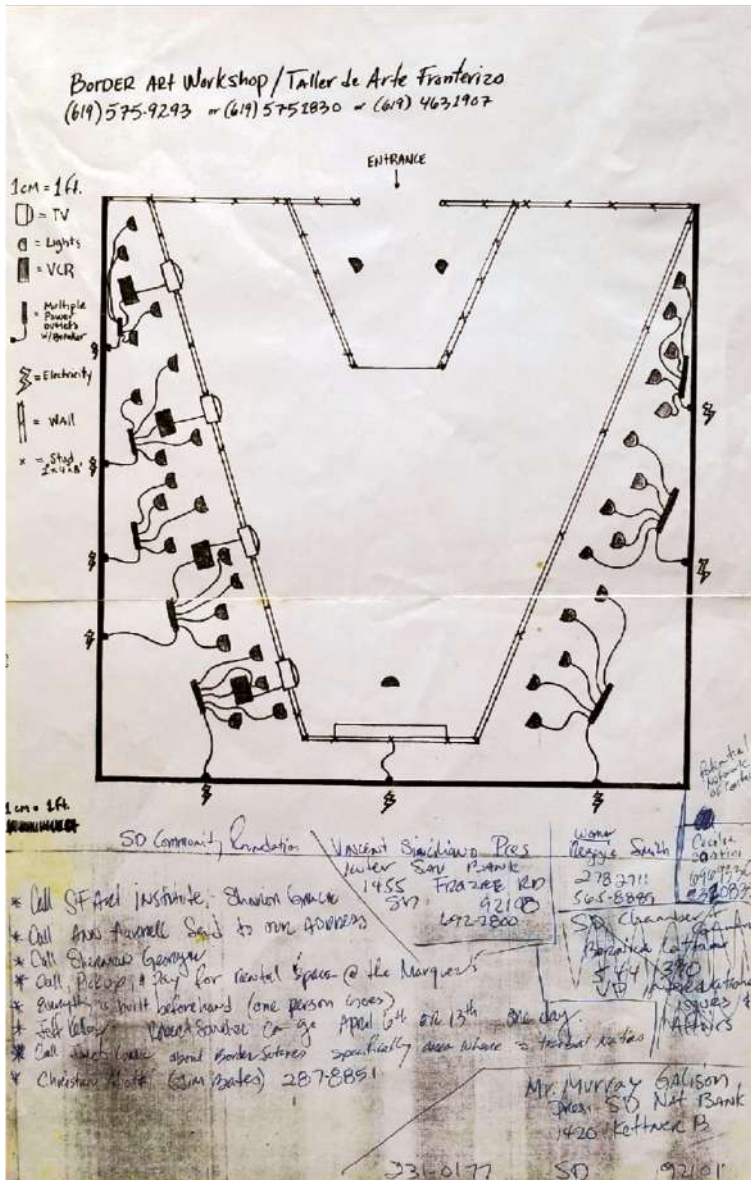 BORDER ART Workshop / Taller de Arte Fronterizo
(619) 575-9293 or (619) 5751830 or (619) 4631907
ENTRANCE
1cm = 1ft.
= TV
= Lights
= VCR
= Multiple Power outlets w/Breaker
= Electricity
= WALL
x = Stud
2"x4"x8'
1cm = 1ft.
SD Community Foundation
Vincent Siciliano Pres
Inter Sav BANK
1455 FRAZEE RD
SD 92108
692-2800
Reggie Smith
278 2711
565-8889
Potential Network of
SD Chamber of
544 1370
VP International
issues &
Affairs
* Call SF Art Institute, Sharon
* Call ANN Send to our ADDRESS
* Call
* Call, Pickup, & Pay for rental Space @ the Marquez's
* Everything is built beforehand (one person goes)
* Jeff Robert Sanchez Can go April 6th OR 13th one day.
* Call about Border Specifically area where
* Christian (Jim Bates) 287-8851
Mr. Murray GALISON
Pres. SD Nat BANK
1420 Kettner B
231-0177 SD 92101